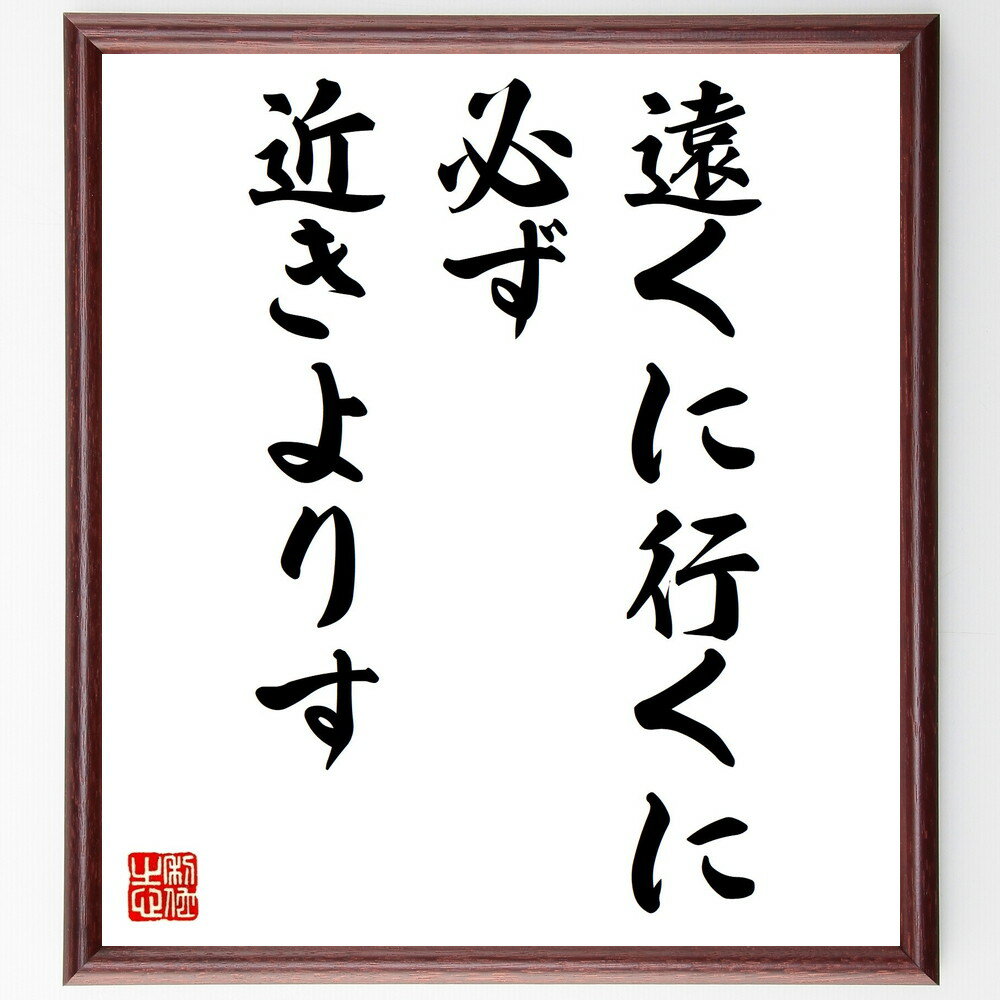 遠くに行くに
必ず
近きよりす